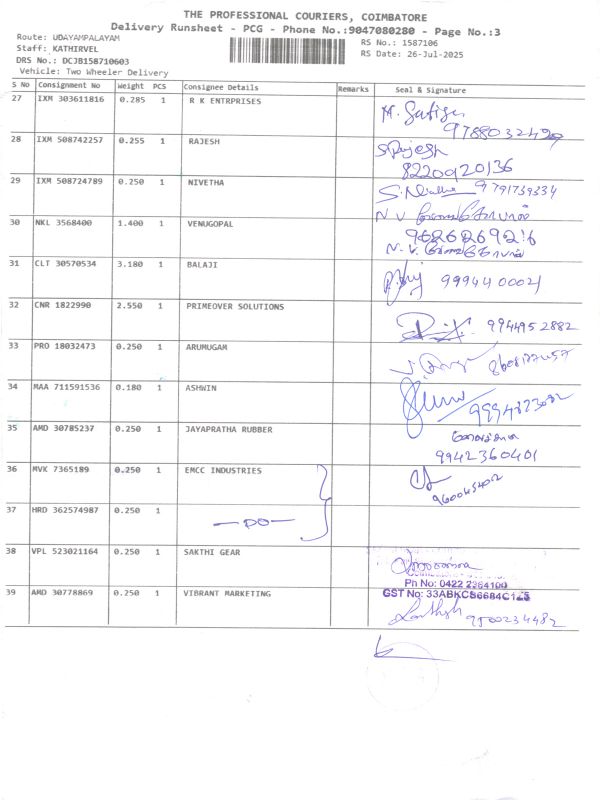 THE PROFESSIONAL COURIERS, COIMBATORE
Delivery Runsheet - PCG - Phone No.:9047080280 - Page No.:3
Route: UDAYAMPALAYAM
Staff: KATHIRVEL
DRS No.: DCJB158710603
Vehicle: Two Wheeler Delivery
RS No.: 1587106
RS Date: 26-Jul-2025
S No Consignment No Weight PCS Consignee Details Remarks Seal & Signature
27 IXM 303611816 0.285 1 R K ENTRPRISES
9788032429
28 IXM 508742257 0.255 1 RAJESH S.Rajesh
8220920136
29 IXM 508724789 0.250 1 NIVETHA 9791739334
30 NKL 3568400 1.400 1 VENUGOPAL
31 CLT 30570534 3.180 1 BALAJI 9994400021
32 CNR 1822990 2.550 1 PRIMEOVER SOLUTIONS 9944952882
33 PRO 18032473 0.250 1 ARUMUGAM
34 MAA 711591536 0.180 1 ASHWIN
35 AMD 30785237 0.250 1 JAYAPRATHA RUBBER
9942360401
36 MVK 7365189 0.250 1 EMCC INDUSTRIES
37 HRD 362574987 0.250 1 —DO—
38 VPL 523021164 0.250 1 SAKTHI GEAR
Ph No: 0422 2364100
39 AMD 30778869 0.250 1 VIBRANT MARKETING GST No:
9500234482